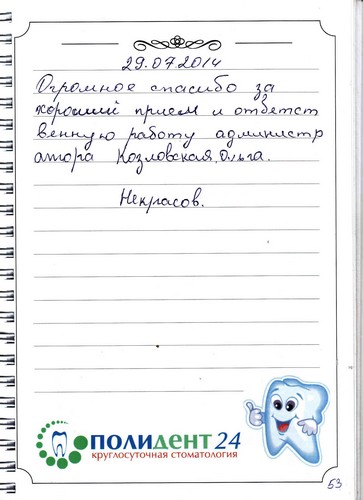 29.07.2014
Огромное спасибо за
хороший прием и ответст
венную работу администр
атора Козловская Ольга.
Некрасов.
ПОЛИДЕНТ 24
круглосуточная стоматология
53